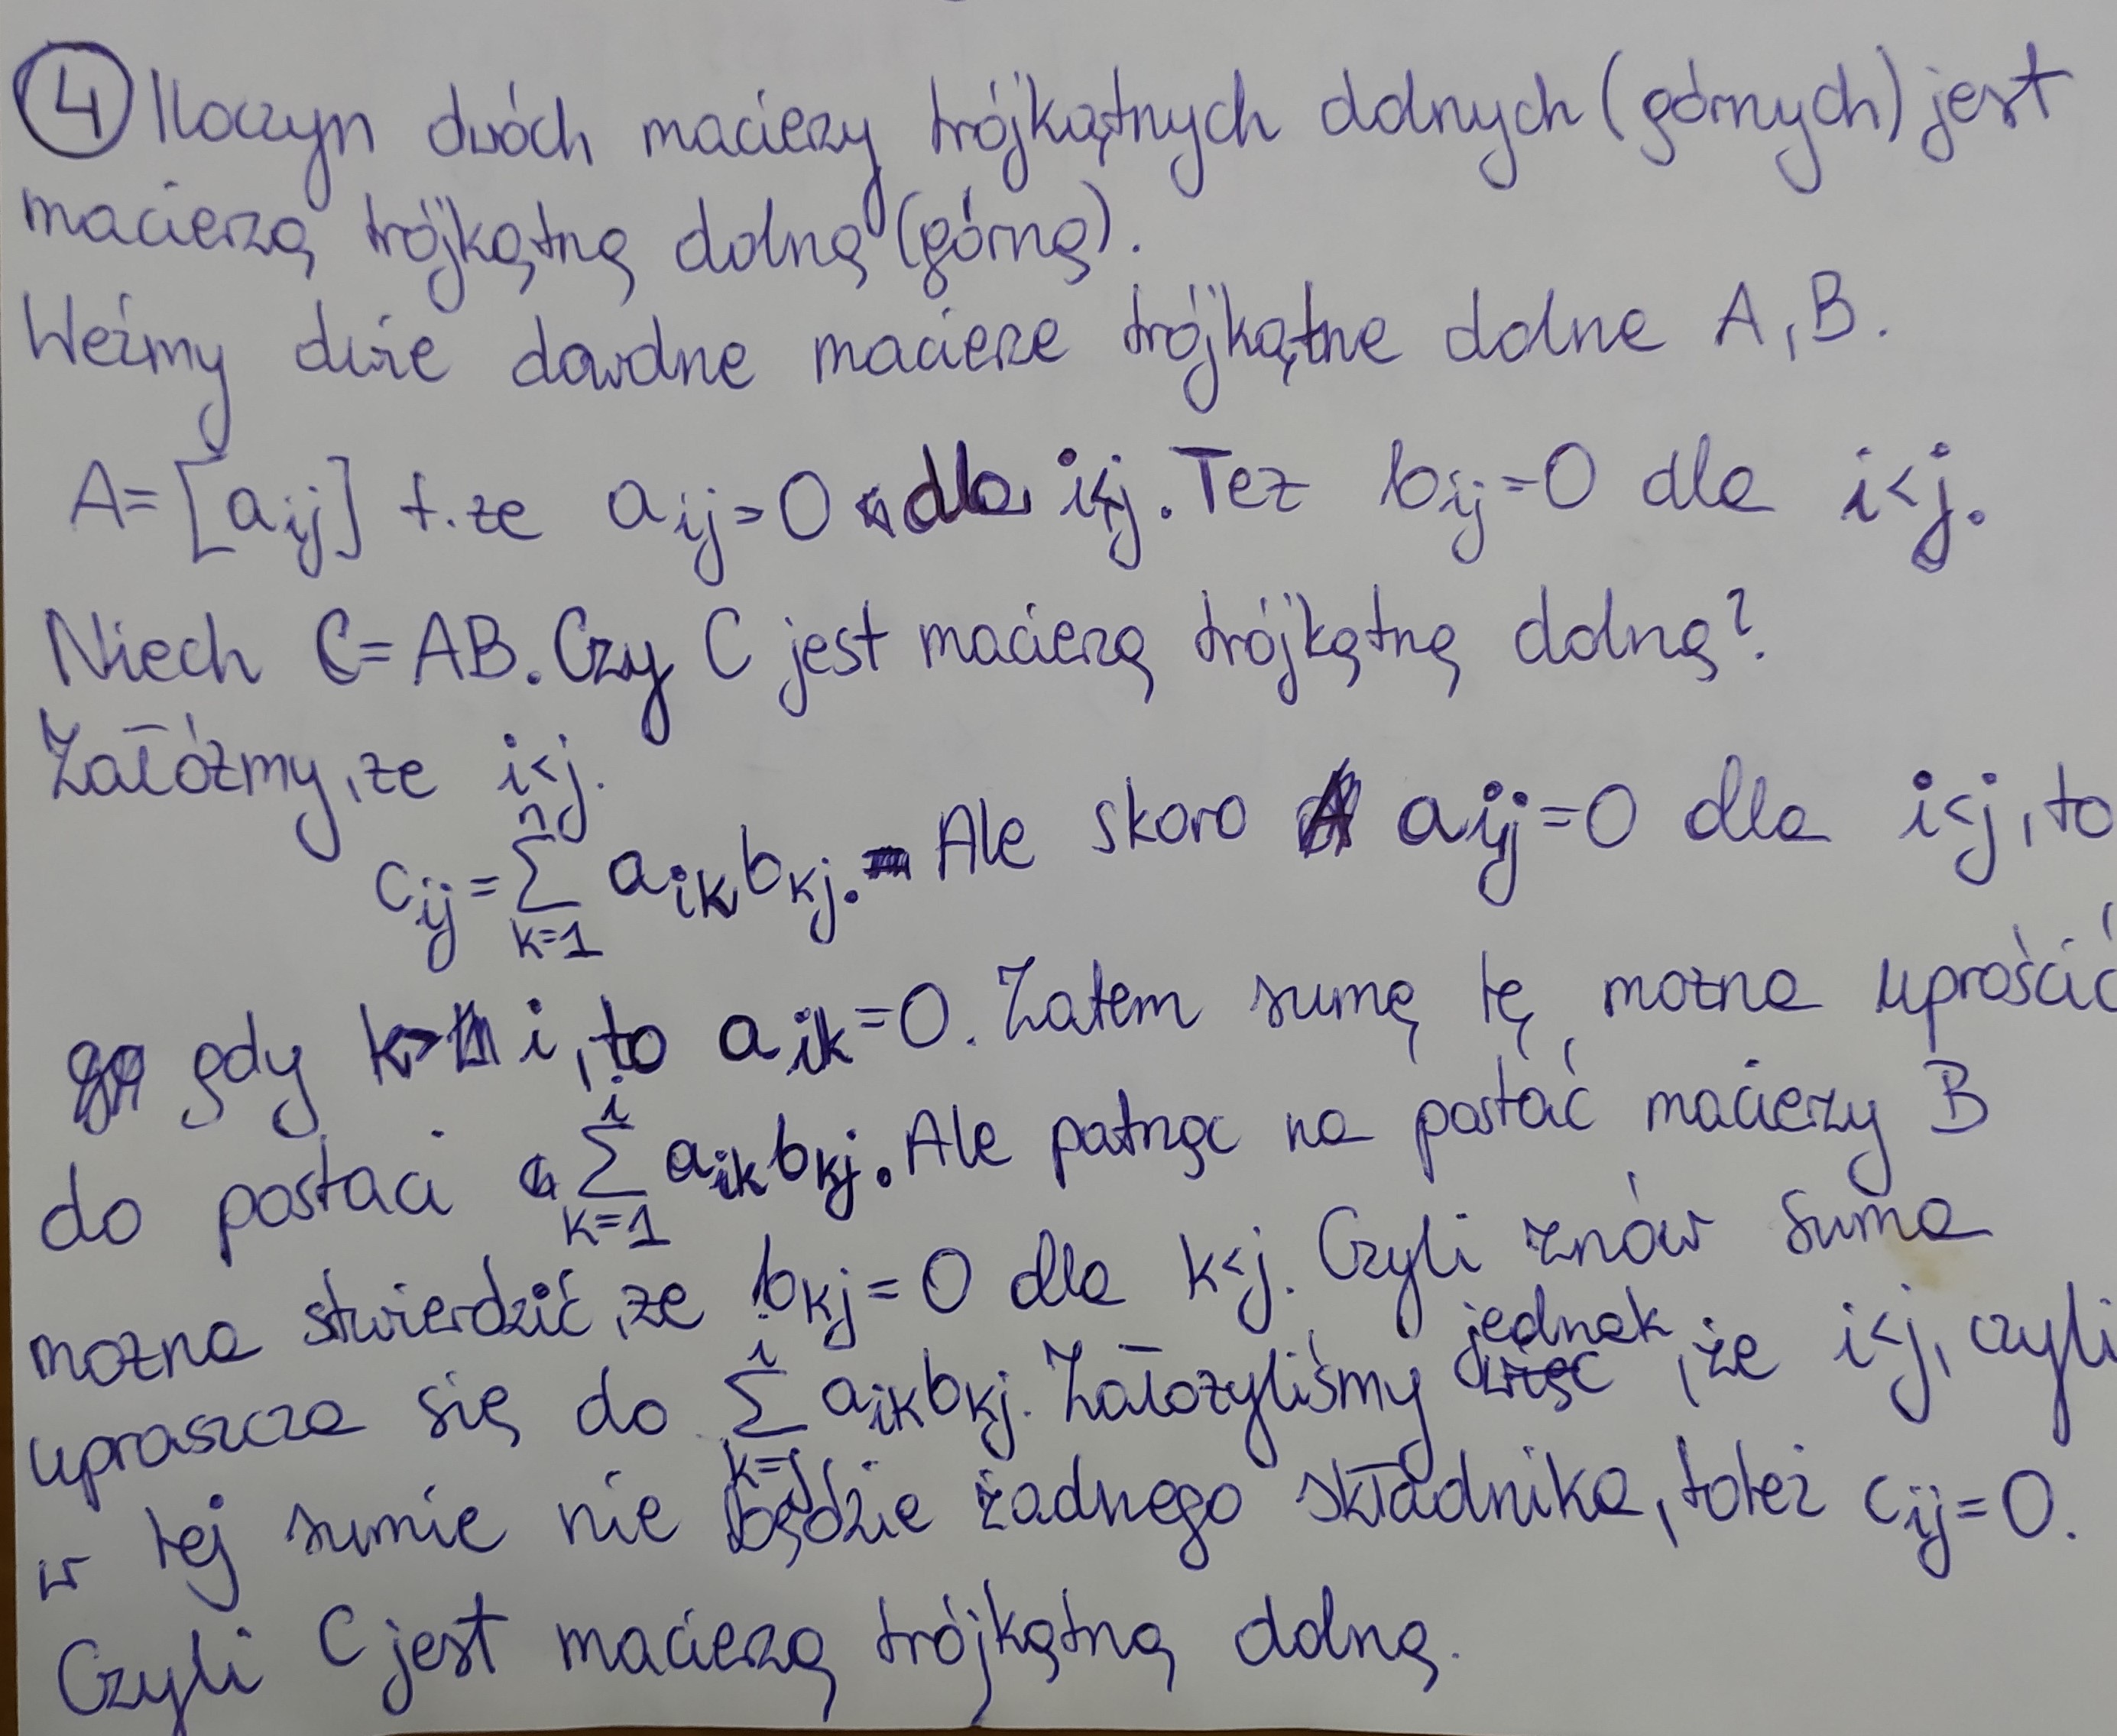 ④ Iloczyn dwóch macierzy trójkątnych dolnych (górnych) jest
macierzą trójkątną dolną (górną).
Weźmy dwie dowolne macierze trójkątne dolne A, B.
A = [a_ij] t. że a_ij = 0 dla i<j. Też b_ij = 0 dla i<j.
Niech C = AB. Czy C jest macierzą trójkątną dolną?
Załóżmy, że i<j.
c_ij = ∑_{k=1}^{n} a_ik b_kj. Ale skoro a_ij = 0 dla i<j, to
gdy k>i, to a_ik = 0. Zatem sumę tę można uprościć
do postaci ∑_{k=1}^{i} a_ik b_kj. Ale patrząc na postać macierzy B
można stwierdzić, że b_kj = 0 dla k<j. Czyli znów suma
upraszcza się do ∑_{k=j}^{i} a_ik b_kj. Założyliśmy jednak, że i<j, czyli
w tej sumie nie będzie żadnego składnika, toteż c_ij = 0.
Czyli C jest macierzą trójkątną dolną.